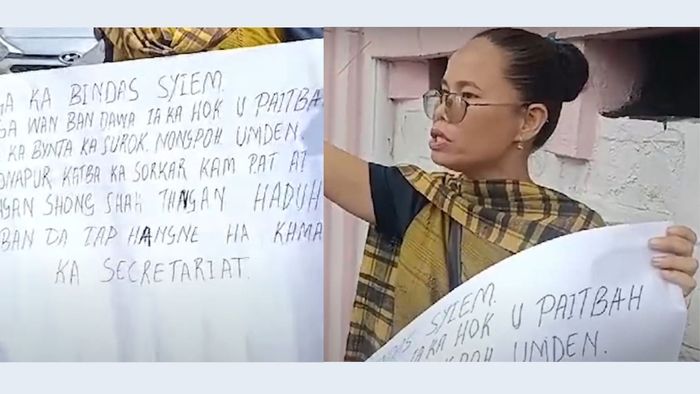 KA BINDAS SYIEM.
WAN BAN DAWA IA KA HOK U PAITBAH
KA BYNTA KA SUROK. NONGPOH UMDEN.
KATBA KA SORKAR KAM PAT AI
SHONG SHAH THNGAN HADUH
BAN DA IAP HANGNE HA KHMA
KA SECRETARIAT.
SYIEM.
IA KA HOK U PAITBAH
UMDEN.